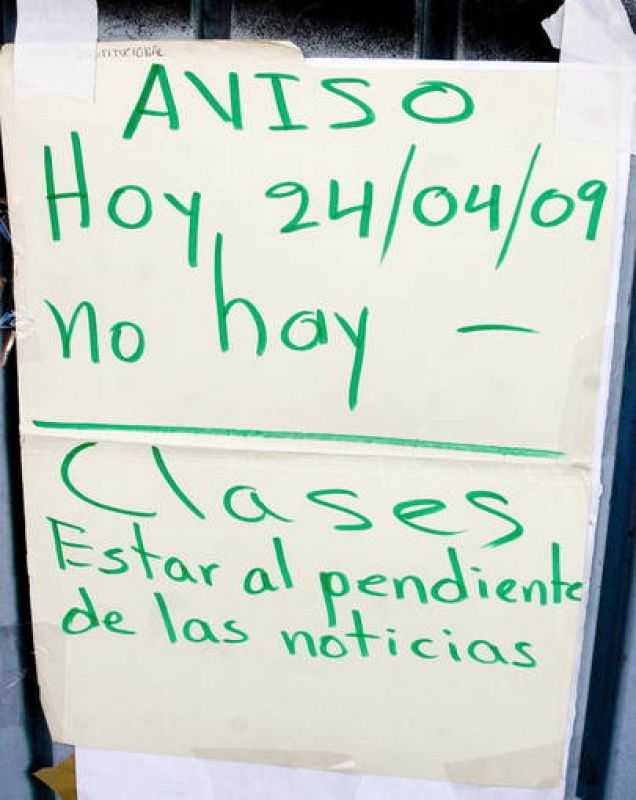 AVISO
Hoy 24/04/09
no hay —
Clases
Estar al pendiente
de las noticias